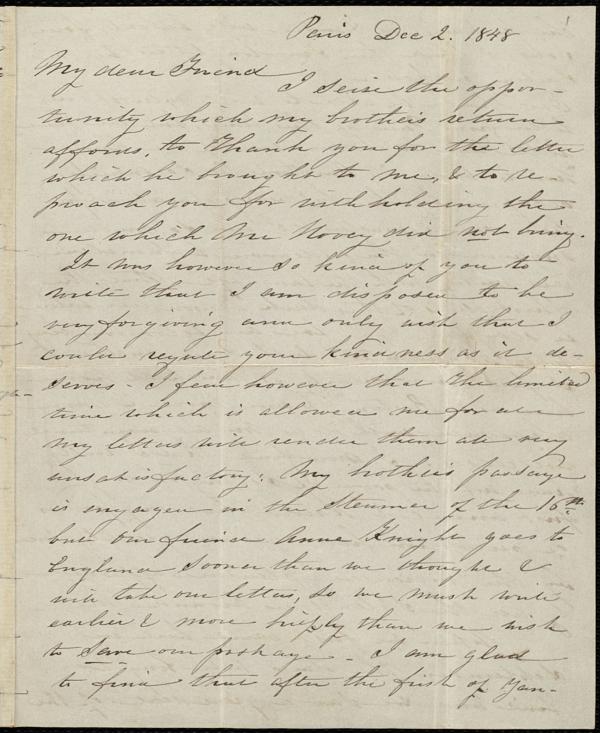 Paris Dec 2. 1848
My dear Friend
I seize the oppor-
tunity which my brother's return
affords, to thank you for the letter
which he brought to me, & to re
proach you for withholding the
one which Mr Hovey did not bring.
It was however so kind of you to
write that I am disposed to be
very forgiving and only wish that I
could requite your kindness as it de-
serves - I fear however that the limited
time which is allowed me for all
my letters will render them all very
unsatisfactory: My brother's passage
is engaged in the Steamer of the 16th
but our friend Anne Knight goes to
England sooner than we thought &
will take our letters, so we must write
earlier & more briefly than we wish
to save our postage - I am glad
to find that after the first of Jan-